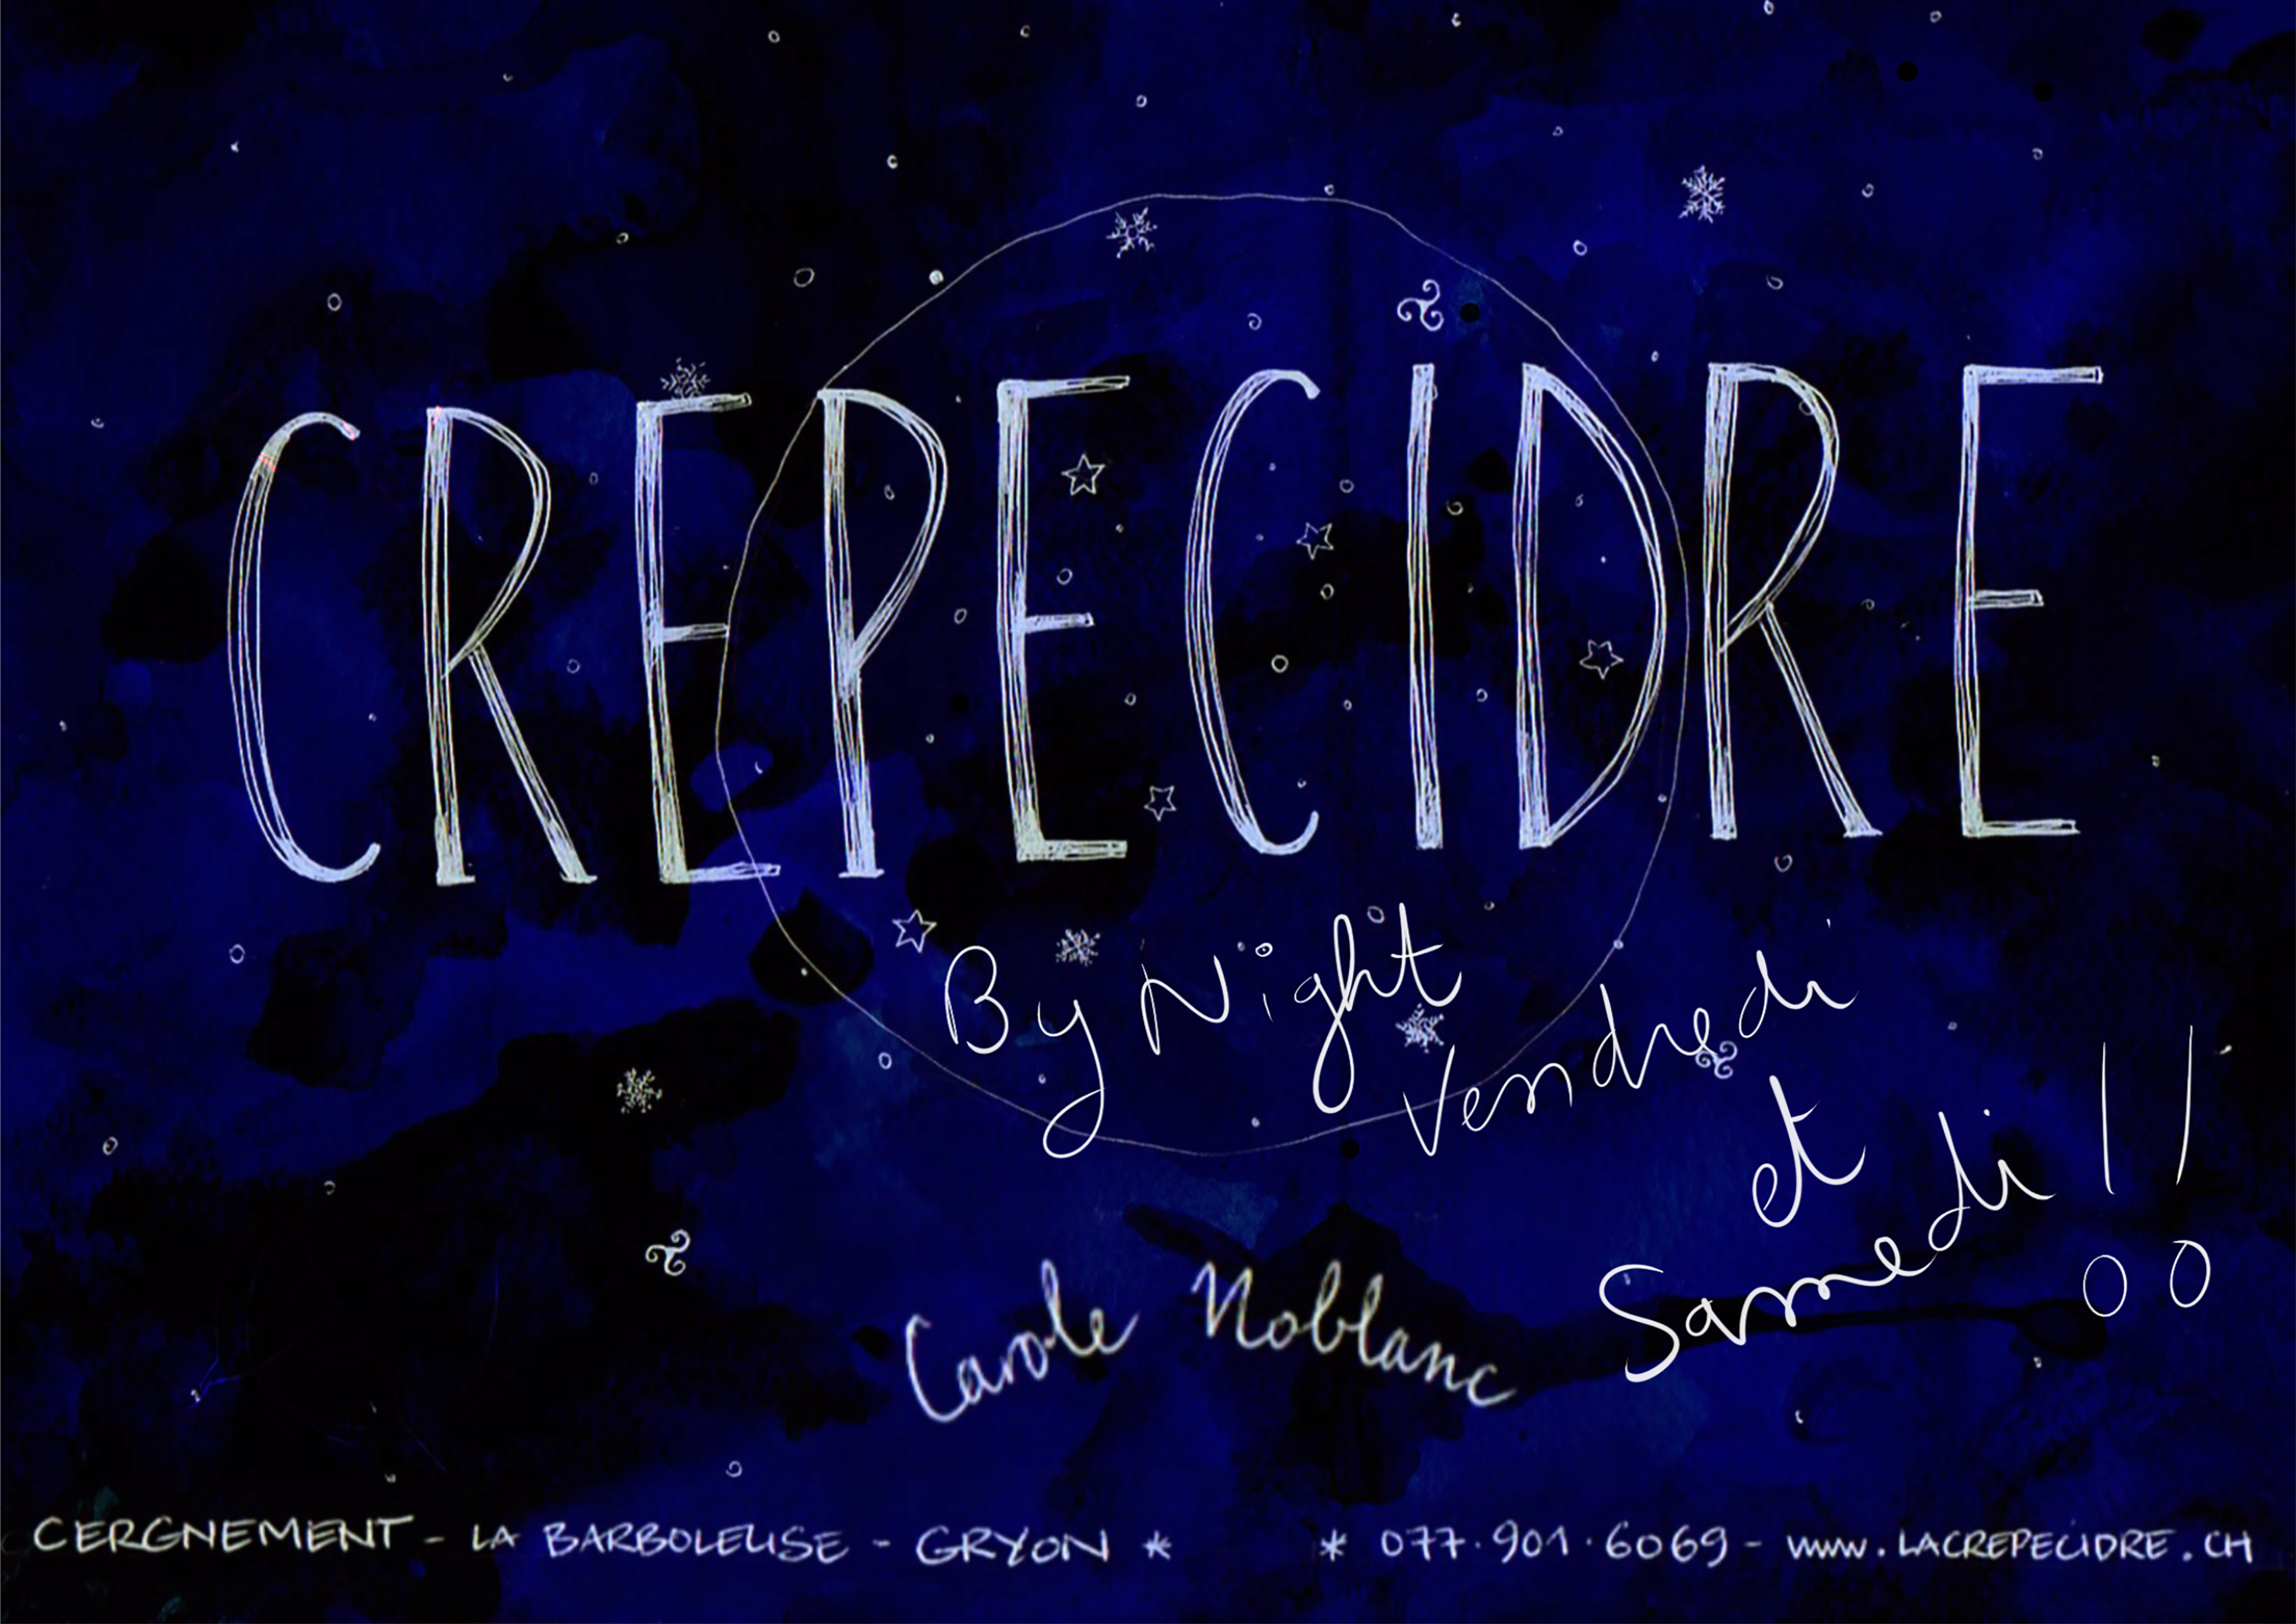 CREPECIDRE
By Night
Vendredi
et
Samedi !!
Carole Noblanc
CERGNEMENT - LA BARBOLEUSE - GRYON * * 077.901.6069 - www.LACREPECIDRE.CH